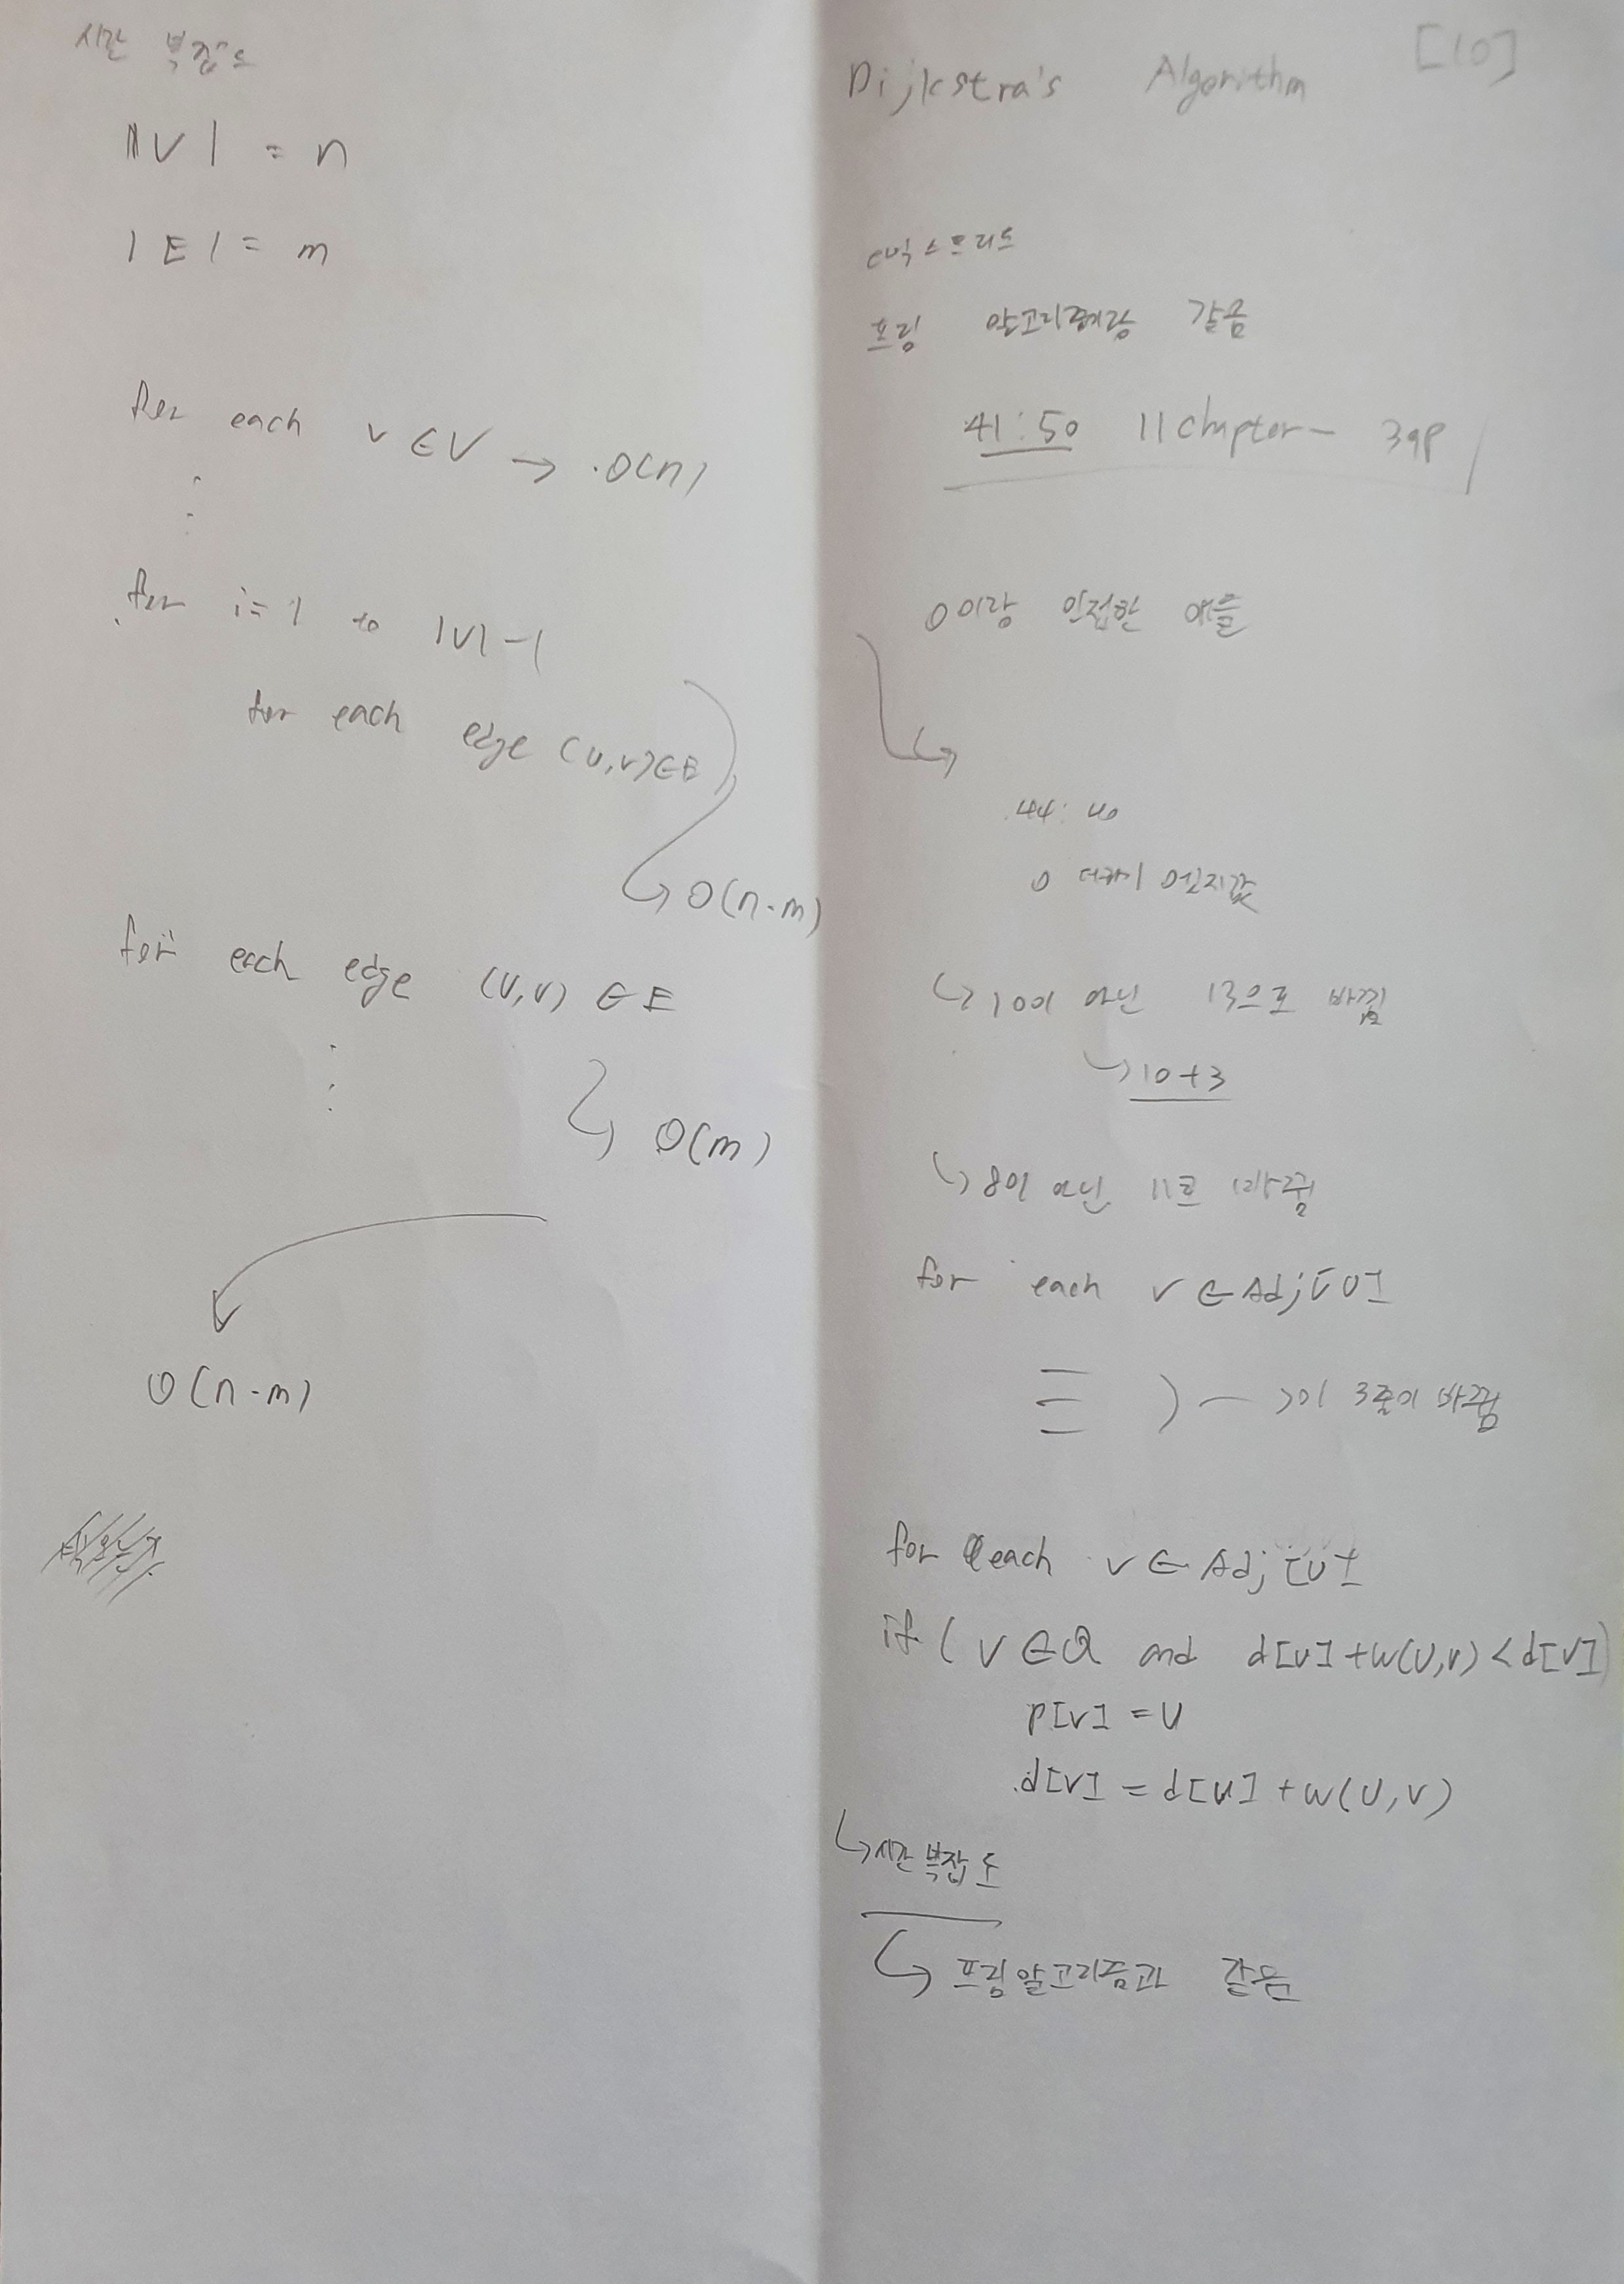 시간 복잡도
|V| = n
|E| = m
for each v ∈ V → O(n)
⋮
for i = 1 to |V| - 1
for each edge (u,v) ∈ E
↳ O(n·m)
for each edge (u,v) ∈ E
⋮
↳ O(m)
O(n·m)
Dijkstra's Algorithm [10]
프림 알고리즘이랑 같음
41:50 11chapter - 39p
0이랑 인접한 애들
↳
44:40
0 더하기 엣지값
↳ 10이 아닌 13으로 바뀜
↳ 10+3
↳ 8이 아닌 11로 바뀜
for each v ∈ Adj[u]
) → 이 3줄이 바뀜
for each v ∈ Adj[u]
if (v ∈ Q and d[u]+w(u,v) < d[v])
p[v] = u
d[v] = d[u] + w(u,v)
↳ 시간 복잡도
↳ 프림 알고리즘과 같음